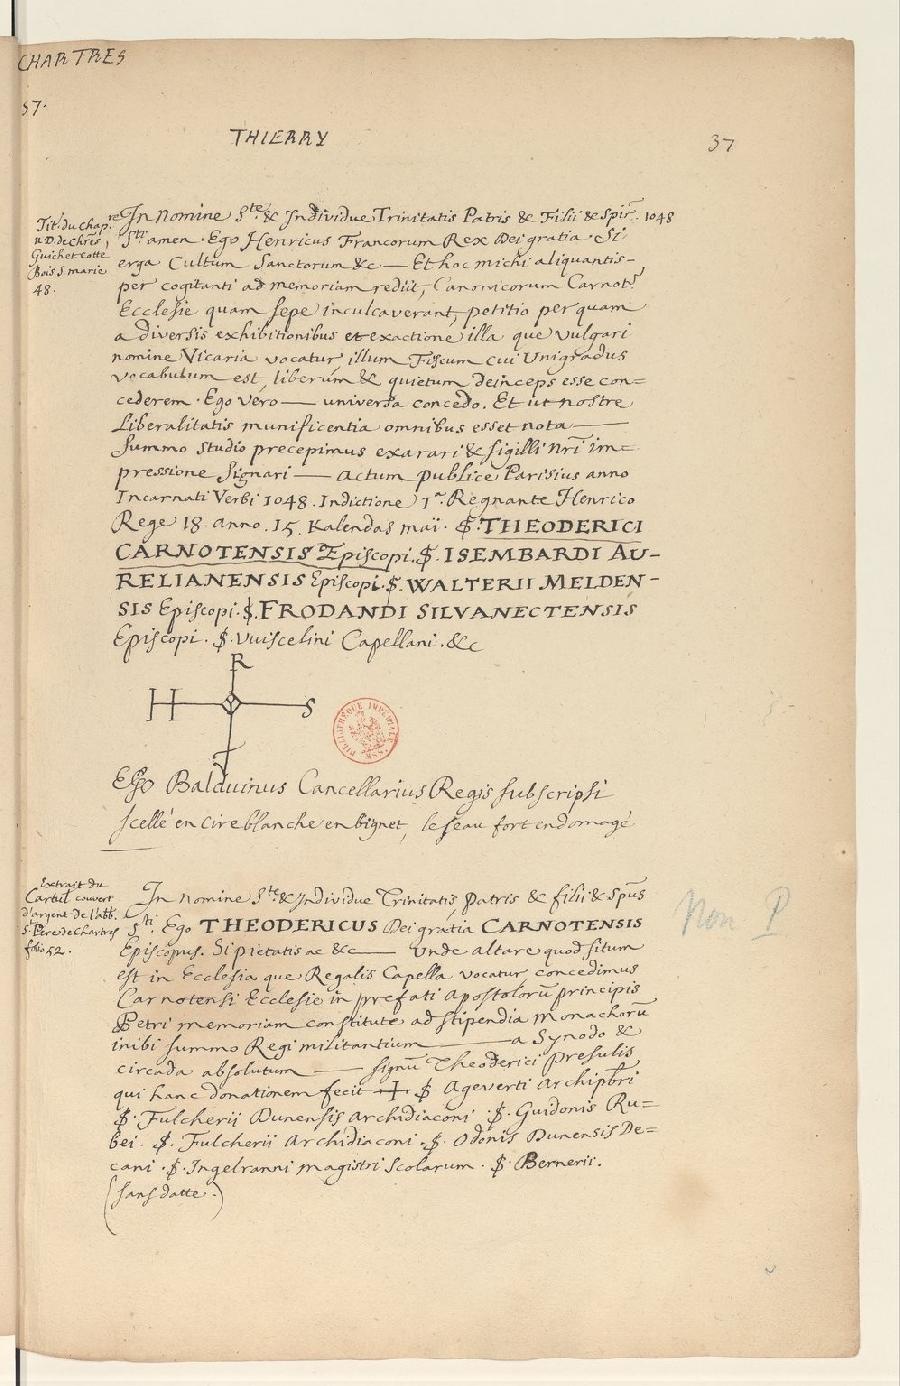 CHARTRES
57.
THIERRY
37
Tit. du Chap.re
N.D. de Chrs,
Guichet cotte
Bois S marie
48.
In Nomine Ste & Individue Trinitatis Patris & Filii & Spir. 1048
Sti amen. Ego Henricus Francorum Rex Dei gratia. Si
erga Cultum Sanctorum &c — Et hoc michi aliquantis-
per cogitanti ad memoriam rediit, Canonicorum Carnot.
Ecclesie quam sepe inculcaverant, petitio per quam
a diversis exhibitionibus et exactione illa que vulgari
nomine Vicaria vocatur, illum Fiscum cui Unigradus
vocabulum est, liberum & quietum deinceps esse con=
cederem. Ego vero — universa concedo. Et ut nostre
Liberalitatis munificentia omnibus esset nota —
Summo studio precepimus exarari & sigilli nri im=
pressione signari — actum publice Parisius anno
Incarnati Verbi 1048. Indictione 1a. Regnante Henrico
Rege 18. anno. 15. Kalendas maii. $. THEODERICI
CARNOTENSIS Episcopi. $. ISEMBARDI AU-
RELIANENSIS Episcopi. $. WALTERII MELDEN-
SIS Episcopi. $. FRODANDI SILVANECTENSIS
Episcopi. $. Vuiscelini Capellani. &c
R
H S
BIBLIOTHEQUE IMPERIALE MSS.
Ego Balduinus Cancellarius Regis subscripsi
scellé en cire blanche en bignet, le seau fort endomagé
Extrait du
Cartul couvert
d'argent de l'abb.
S. Pere de Chartres
folio 52.
In nomine Ste & Individue Trinitatis, Patris & filii & Spus
Sti. Ego THEODERICUS Dei gratia CARNOTENSIS
Episcopus. Si pietatis ac &c — Unde altare quod situm
est in Ecclesia que Regalis Capella vocatur concedimus
Carnotensi Ecclesie in prefati apostolorū principis
Petri memoriam constitute ad stipendia monachorū
inibi summo Regi militantium — a Synodo &
circada absolutum — signū Theoderici presulis
qui hanc donationem fecit + $ Ageverti Archipbri
$. Fulcherii Dunensis archidiaconi. $. Guidonis Ru=
bei. $. Fulcherii Archidiaconi. $. Odonis Dunensis De=
cani. $. Ingelranni magistri scolarum. $. Bernerii.
(sans datte.)
Non P